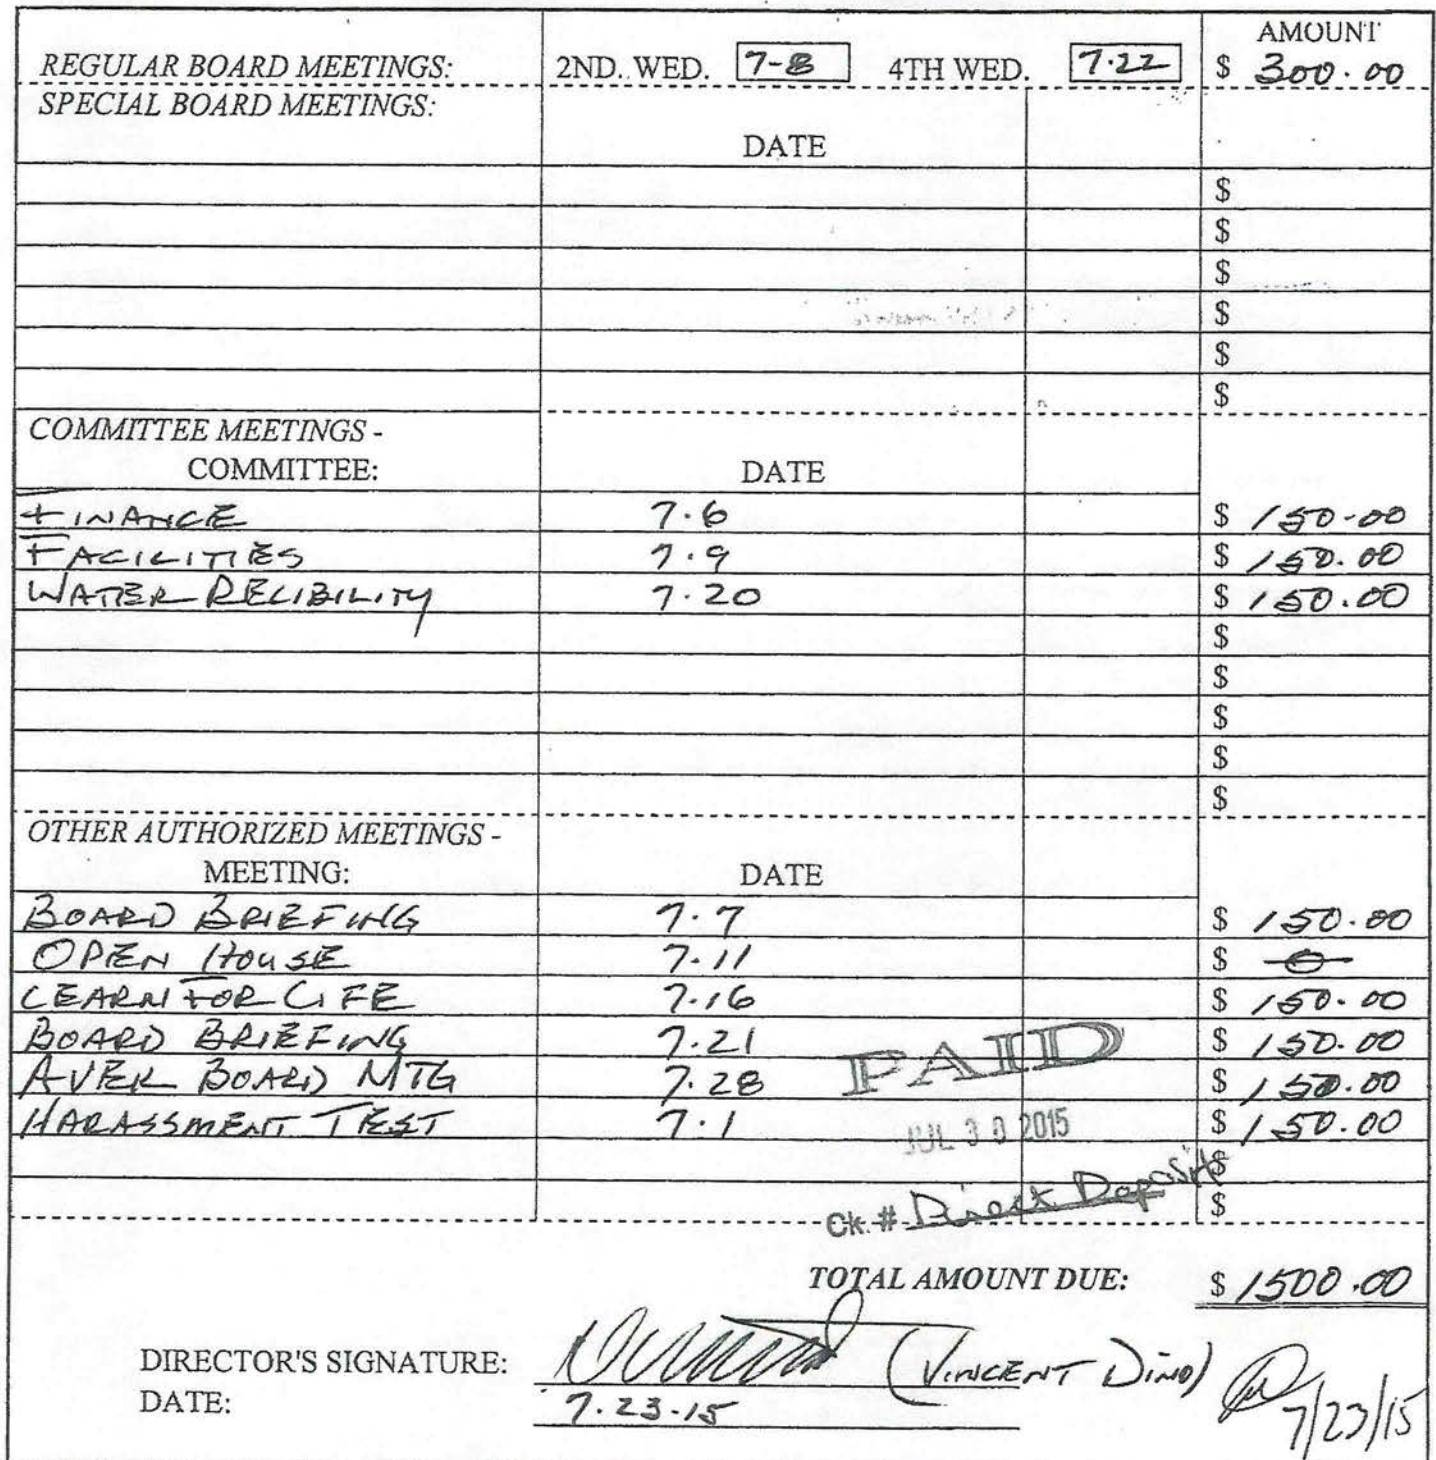 AMOUNT
REGULAR BOARD MEETINGS: 2ND. WED. 7-8 4TH WED. 7.22 $ 300.00
SPECIAL BOARD MEETINGS:
DATE
$
$
$
$
$
$
COMMITTEE MEETINGS -
COMMITTEE: DATE
FINANCE 7.6 $ 150-00
FACILITIES 7.9 $ 150.00
WATER RELIBILITY 7.20 $ 150.00
$
$
$
$
$
OTHER AUTHORIZED MEETINGS -
MEETING: DATE
BOARD BRIEFING 7.7 $ 150.00
OPEN HOUSE 7.11 $ 0
LEARN FOR LIFE 7.16 $ 150.00
BOARD BRIEFING 7.21 $ 150.00
AVEK BOARD MTG 7.28 $ 150.00
HARASSMENT TEST 7.1 $ 150.00
PAID
JUL 30 2015
$
Ck. # Direct Deposit $
TOTAL AMOUNT DUE: $ 1500.00
DIRECTOR'S SIGNATURE: (VINCENT DINO)
DATE: 7.23.15 7/23/15